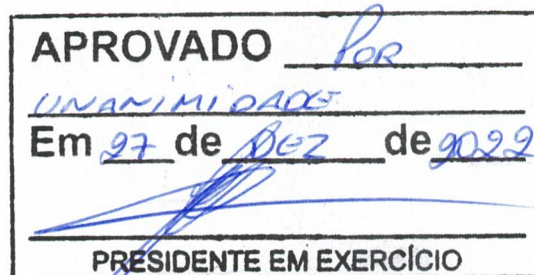 APROVADO Por
UNANIMIDADE
Em 27 de DEZ de 2022
PRESIDENTE EM EXERCÍCIO